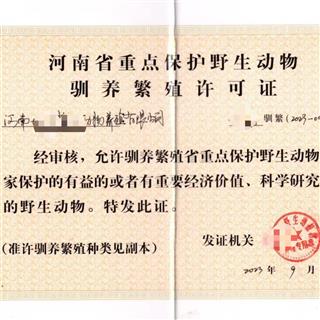 河南省重点保护野生动物
驯养繁殖许可证
驯繁（2023-0
经审核，允许驯养繁殖省重点保护野生动物
家保护的有益的或者有重要经济价值、科学研究
的野生动物。特发此证。
（准许驯养繁殖种类见副本）
发证机关
2023 年 9 月